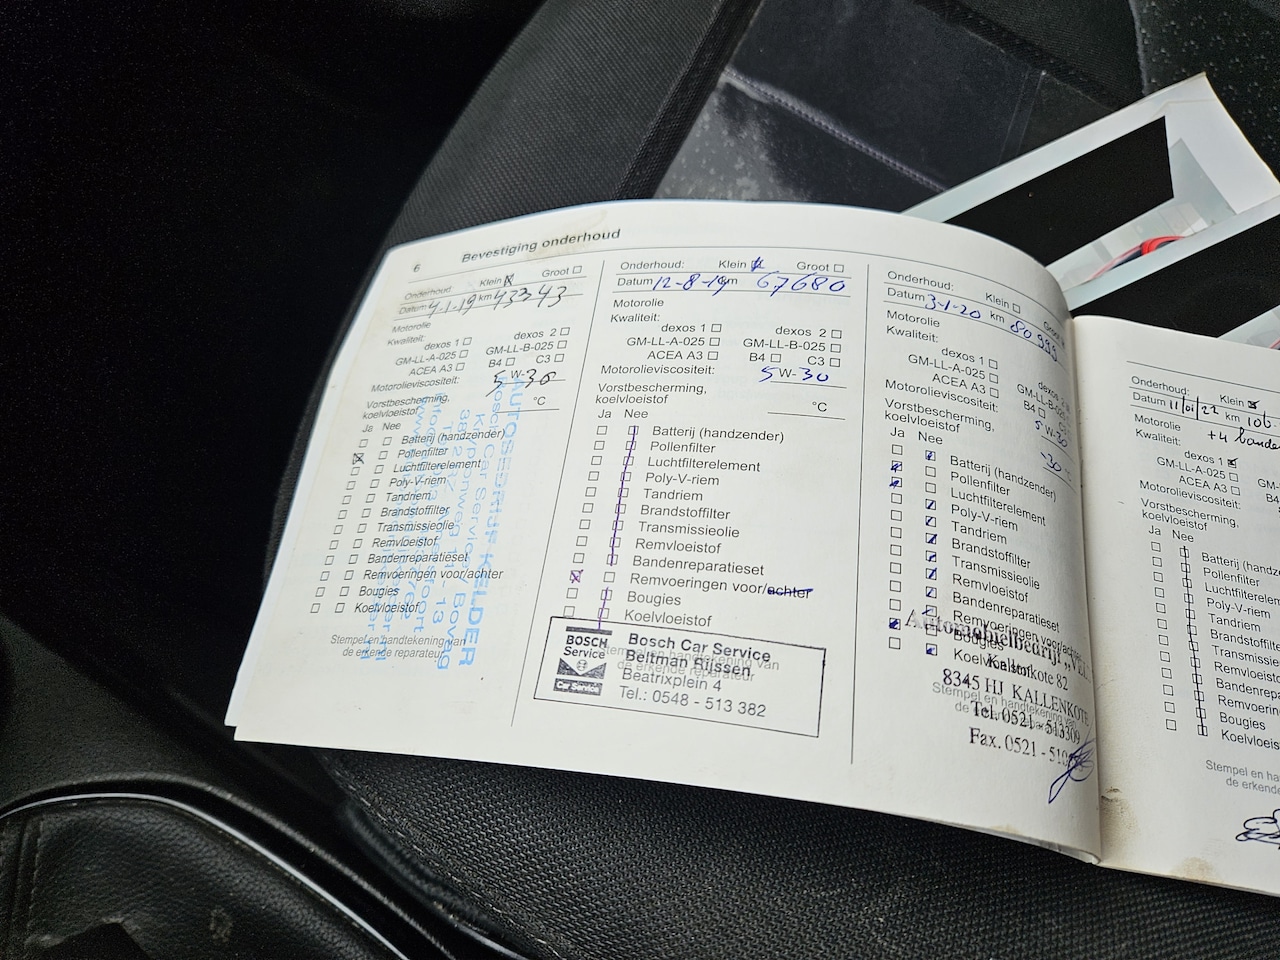 6 Bevestiging onderhoud
Onderhoud: Klein Groot
Datum: 4-1-19 km 43343
Motorolie
Kwaliteit:
dexos 1 dexos 2
GM-LL-A-025 GM-LL-B-025
ACEA A3 B4 C3
Motorolieviscositeit: 5 W-30
Vorstbescherming,
koelvloeistof °C
Ja Nee
Batterij (handzender)
Pollenfilter
Luchtfilterelement
Poly-V-riem
Tandriem
Brandstoffilter
Transmissieolie
Remvloeistof
Bandenreparatieset
Remvoeringen voor/achter
Bougies
Koelvloeistof
Stempel en handtekening van
de erkende reparateur
AUTOBEDRIJF KELDER
Bosch Car Service / Bovag
Onderhoud: Klein Groot
Datum 12-8-19 km 67680
Motorolie
Kwaliteit:
dexos 1 dexos 2
GM-LL-A-025 GM-LL-B-025
ACEA A3 B4 C3
Motorolieviscositeit: 5 W-30
Vorstbescherming,
koelvloeistof °C
Ja Nee
Batterij (handzender)
Pollenfilter
Luchtfilterelement
Poly-V-riem
Tandriem
Brandstoffilter
Transmissieolie
Remvloeistof
Bandenreparatieset
Remvoeringen voor/achter
Bougies
Koelvloeistof
BOSCH
Service
Car Service
Bosch Car Service
Beltman Rijssen
Beatrixplein 4
Tel.: 0548 - 513 382
Onderhoud: Klein
Datum 3-1-20 km 80999
Motorolie
Kwaliteit:
dexos 1
GM-LL-A-025
ACEA A3 B4
Motorolieviscositeit: 5 W-30
Vorstbescherming,
koelvloeistof -30
Ja Nee
Batterij (handzender)
Pollenfilter
Luchtfilterelement
Poly-V-riem
Tandriem
Brandstoffilter
Transmissieolie
Remvloeistof
Bandenreparatieset
Remvoeringen voor/achter
Bougies
Koelvloeistof
Automobielbedrijf
Kallenkote 82
8345 HJ KALLENKOTE
Tel. 0521 - 513309
Fax. 0521
Onderhoud: Klein
Datum 11/01/22 km 106
Motorolie
Kwaliteit:
dexos 1
GM-LL-A-025
ACEA A3
Motorolieviscositeit:
Vorstbescherming,
koelvloeistof
Ja Nee
Batterij (handz
Pollenfilter
Luchtfiltereleme
Poly-V-riem
Tandriem
Brandstoffilter
Transmissie
Remvloeistof
Bandenrepara
Remvoerin
Bougies
Koelvloeis
Stempel en hand
de erkende